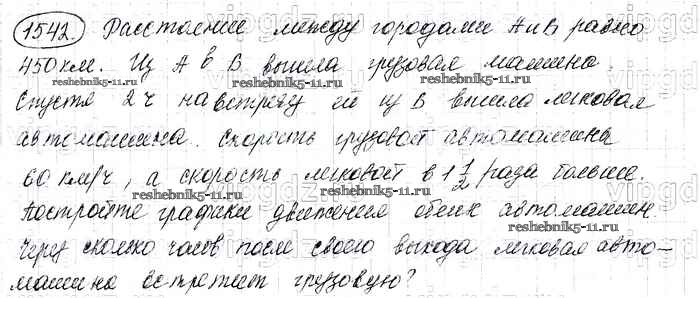 1542. Расстояние между городами А и В равно
450 км. Из А в В вышла грузовая машина.
reshebnik5-11.ru reshebnik5-11.ru
Спустя 2 ч навстречу ей из В вышла легковая
автомашина. Скорость грузовой автомашины
reshebnik5-11.ru
60 км/ч, а скорость легковой в 1 1/2 раза больше.
reshebnik5-11.ru
Постройте графики движения обеих автомашин.
reshebnik5-11.ru
Через сколько часов после своего выхода легковая авто-
машина встретит грузовую?
reshebnik5-11.ru